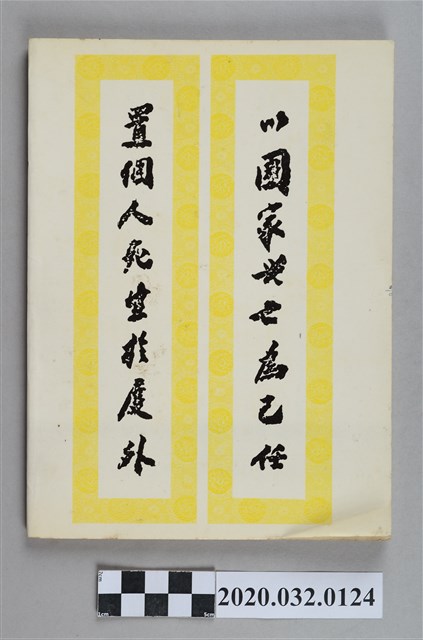 以國家興亡為己任
置個人死生於度外
1cm
5cm
2020.032.0124